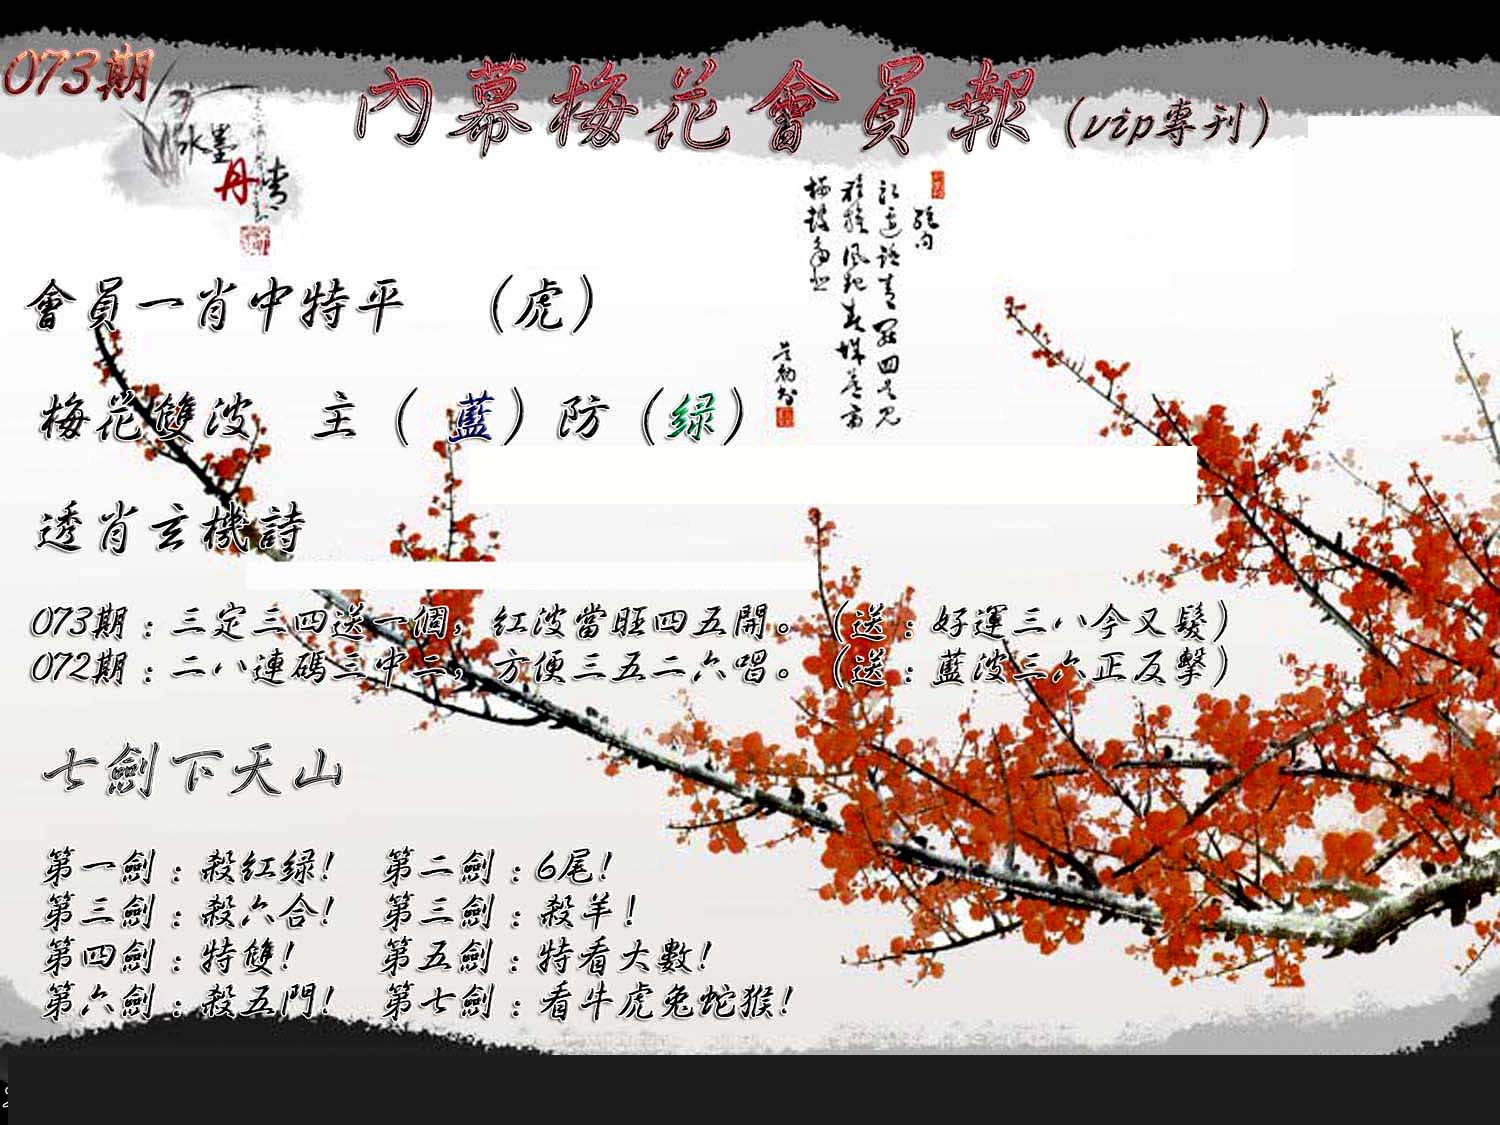 073期
內幕梅花會員報（vip專刊）
水墨
丹青
會員一肖中特平　（虎）
梅花雙波　主（ 藍）防（绿）
透肖玄機詩
073期：三定三四送一個，紅波當旺四五開。（送：好運三八今又髮）
072期：二八連碼三中二，方便三五二六唱。（送：藍波三六正反擊）
七劍下天山
第一劍：殺紅绿！　第二劍：6尾！
第三劍：殺六合！　第三劍：殺羊！
第四劍：特雙！　第五劍：特看大數！
第六劍：殺五門！　第七劍：看牛虎兔蛇猴！